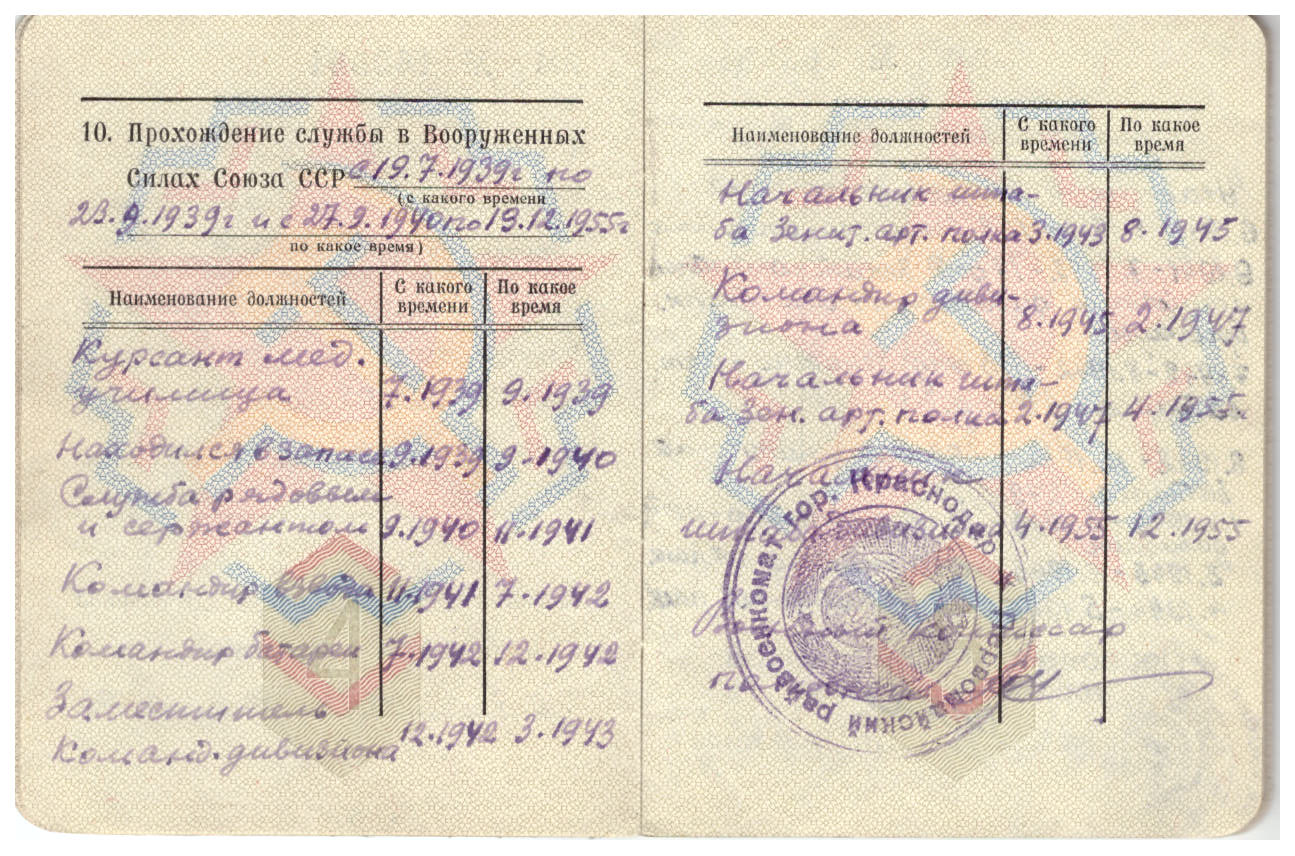 10. Прохождение службы в Вооруженных
Силах Союза ССР с 19.7.1939г по
(с какого времени
23.9.1939г и с 27.9.1940 по 19.12.1955г
по какое время)
Наименование должностей С какого времени По какое время
Курсант мед.
училища 7.1939 9.1939
Находился в запасе 9.1939 9.1940
Служба рядовым
и сержантом 9.1940 11.1941
Командир взвода 11.1941 7.1942
Командир батареи 7.1942 12.1942
Заместитель
команд. дивизиона 12.1942 3.1943
4
Наименование должностей С какого времени По какое время
Начальник шта-
ба Зенит. арт. полка 3.1943 8.1945
Командир диви-
зиона 8.1945 2.1947
Начальник шта-
ба Зен. арт. полка 2.1947 4.1955г
Начальник
штаба дивизиона 4.1955 12.1955
райвоенкомат гор. Краснодар
Военный комиссар